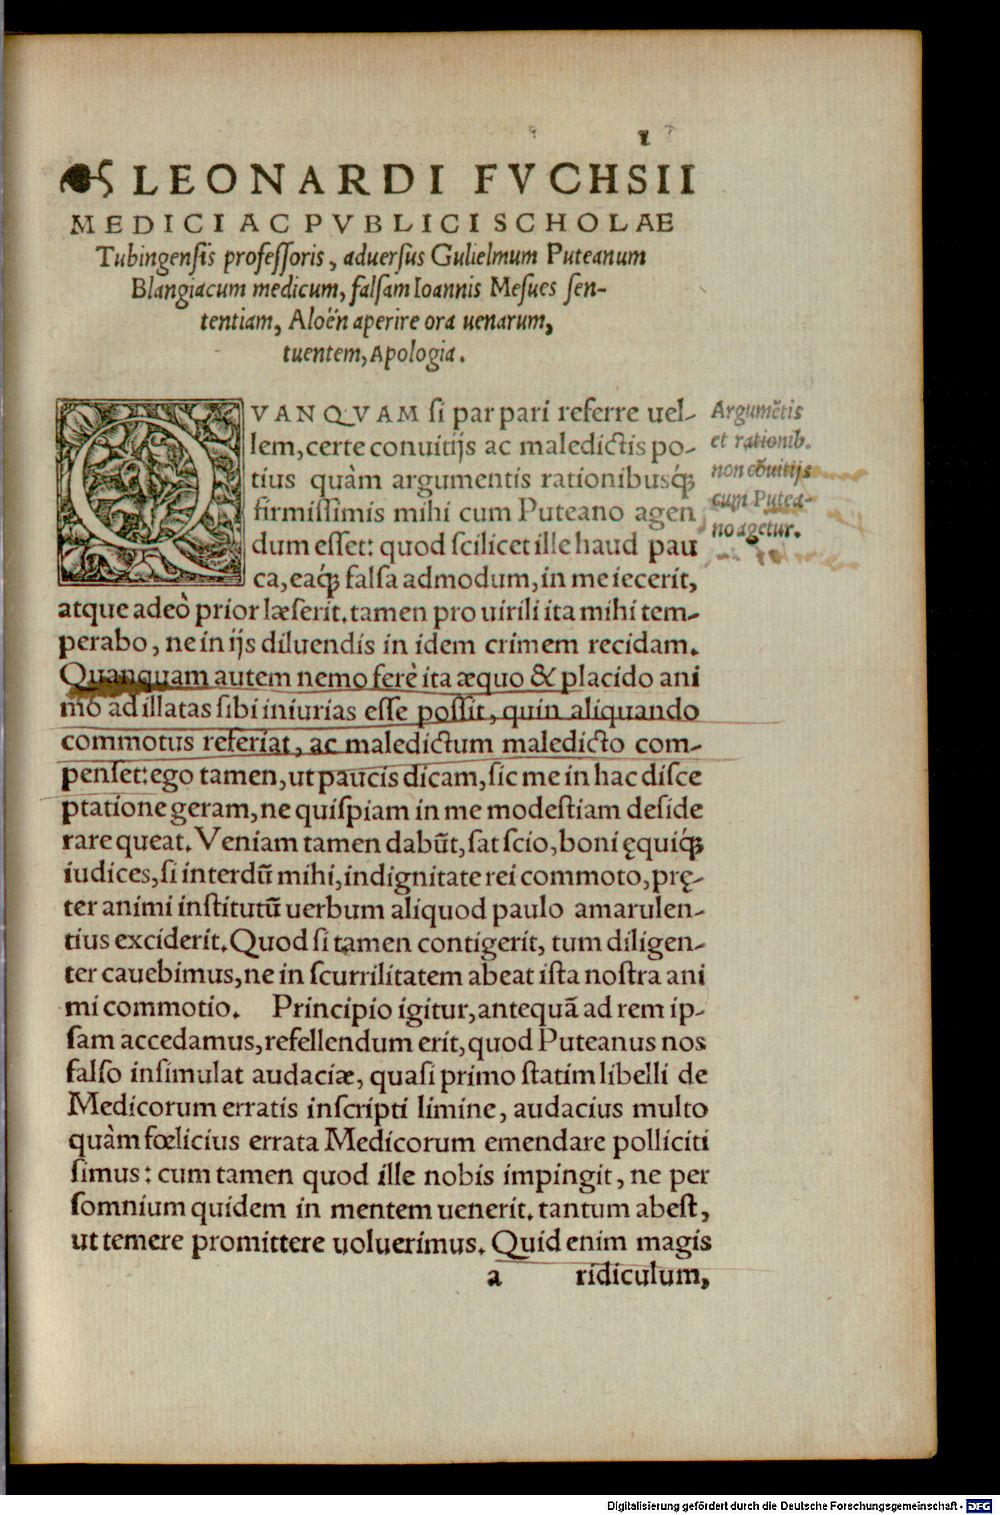 1
LEONARDI FVCHSII
MEDICI AC PVBLICI SCHOLAE
Tubingenſis profeſſoris, aduerſus Gulielmum Puteanum
Blangiacum medicum, falſam Ioannis Meſues ſen-
tentiam, Aloën aperire ora uenarum,
tuentem, Apologia.
QVANQVAM ſi par pari referre uel-
lem, certe conuitijs ac maledictis po-
tius quàm argumentis rationibusq́;
firmiſſimis mihi cum Puteano agen
dum eſſet: quod ſcilicet ille haud pau
ca, eaq́; falſa admodum, in me iecerit,
atque adeò prior læſerit. tamen pro uirili ita mihi tem-
perabo, ne in ijs diluendis in idem crimem recidam.
Quanquam autem nemo ferè ita æquo & placido ani
mo ad illatas ſibi iniurias eſſe poſſit, quin aliquando
commotus referiat, ac maledictum maledicto com-
penſet: ego tamen, ut paucis dicam, ſic me in hac diſce
ptatione geram, ne quiſpiam in me modeſtiam deſide
rare queat. Veniam tamen dabũt, ſat ſcio, boni ęquiq́;
iudices, ſi interdũ mihi, indignitate rei commoto, prę-
ter animi inſtitutũ uerbum aliquod paulo amarulen-
tius exciderit. Quod ſi tamen contigerit, tum diligen-
ter cauebimus, ne in ſcurrilitatem abeat iſta noſtra ani
mi commotio. Principio igitur, antequã ad rem ip-
ſam accedamus, refellendum erit, quod Puteanus nos
falſo inſimulat audaciæ, quaſi primo ſtatim libelli de
Medicorum erratis inſcripti limine, audacius multo
quàm fœlicius errata Medicorum emendare polliciti
ſimus: cum tamen quod ille nobis impingit, ne per
ſomnium quidem in mentem uenerit. tantum abeſt,
ut temere promittere uoluerimus. Quid enim magis
a ridiculum,
Argumẽtis
et rationib.
non cõuitijs
cum Putea-
no agetur.
Digitalisierung gefördert durch die Deutsche Forschungsgemeinschaft - DFG